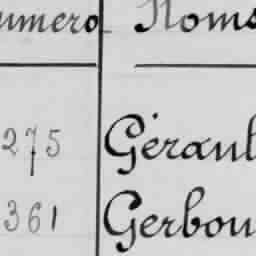 umero Noms
275 Géraul
361 Gerbou